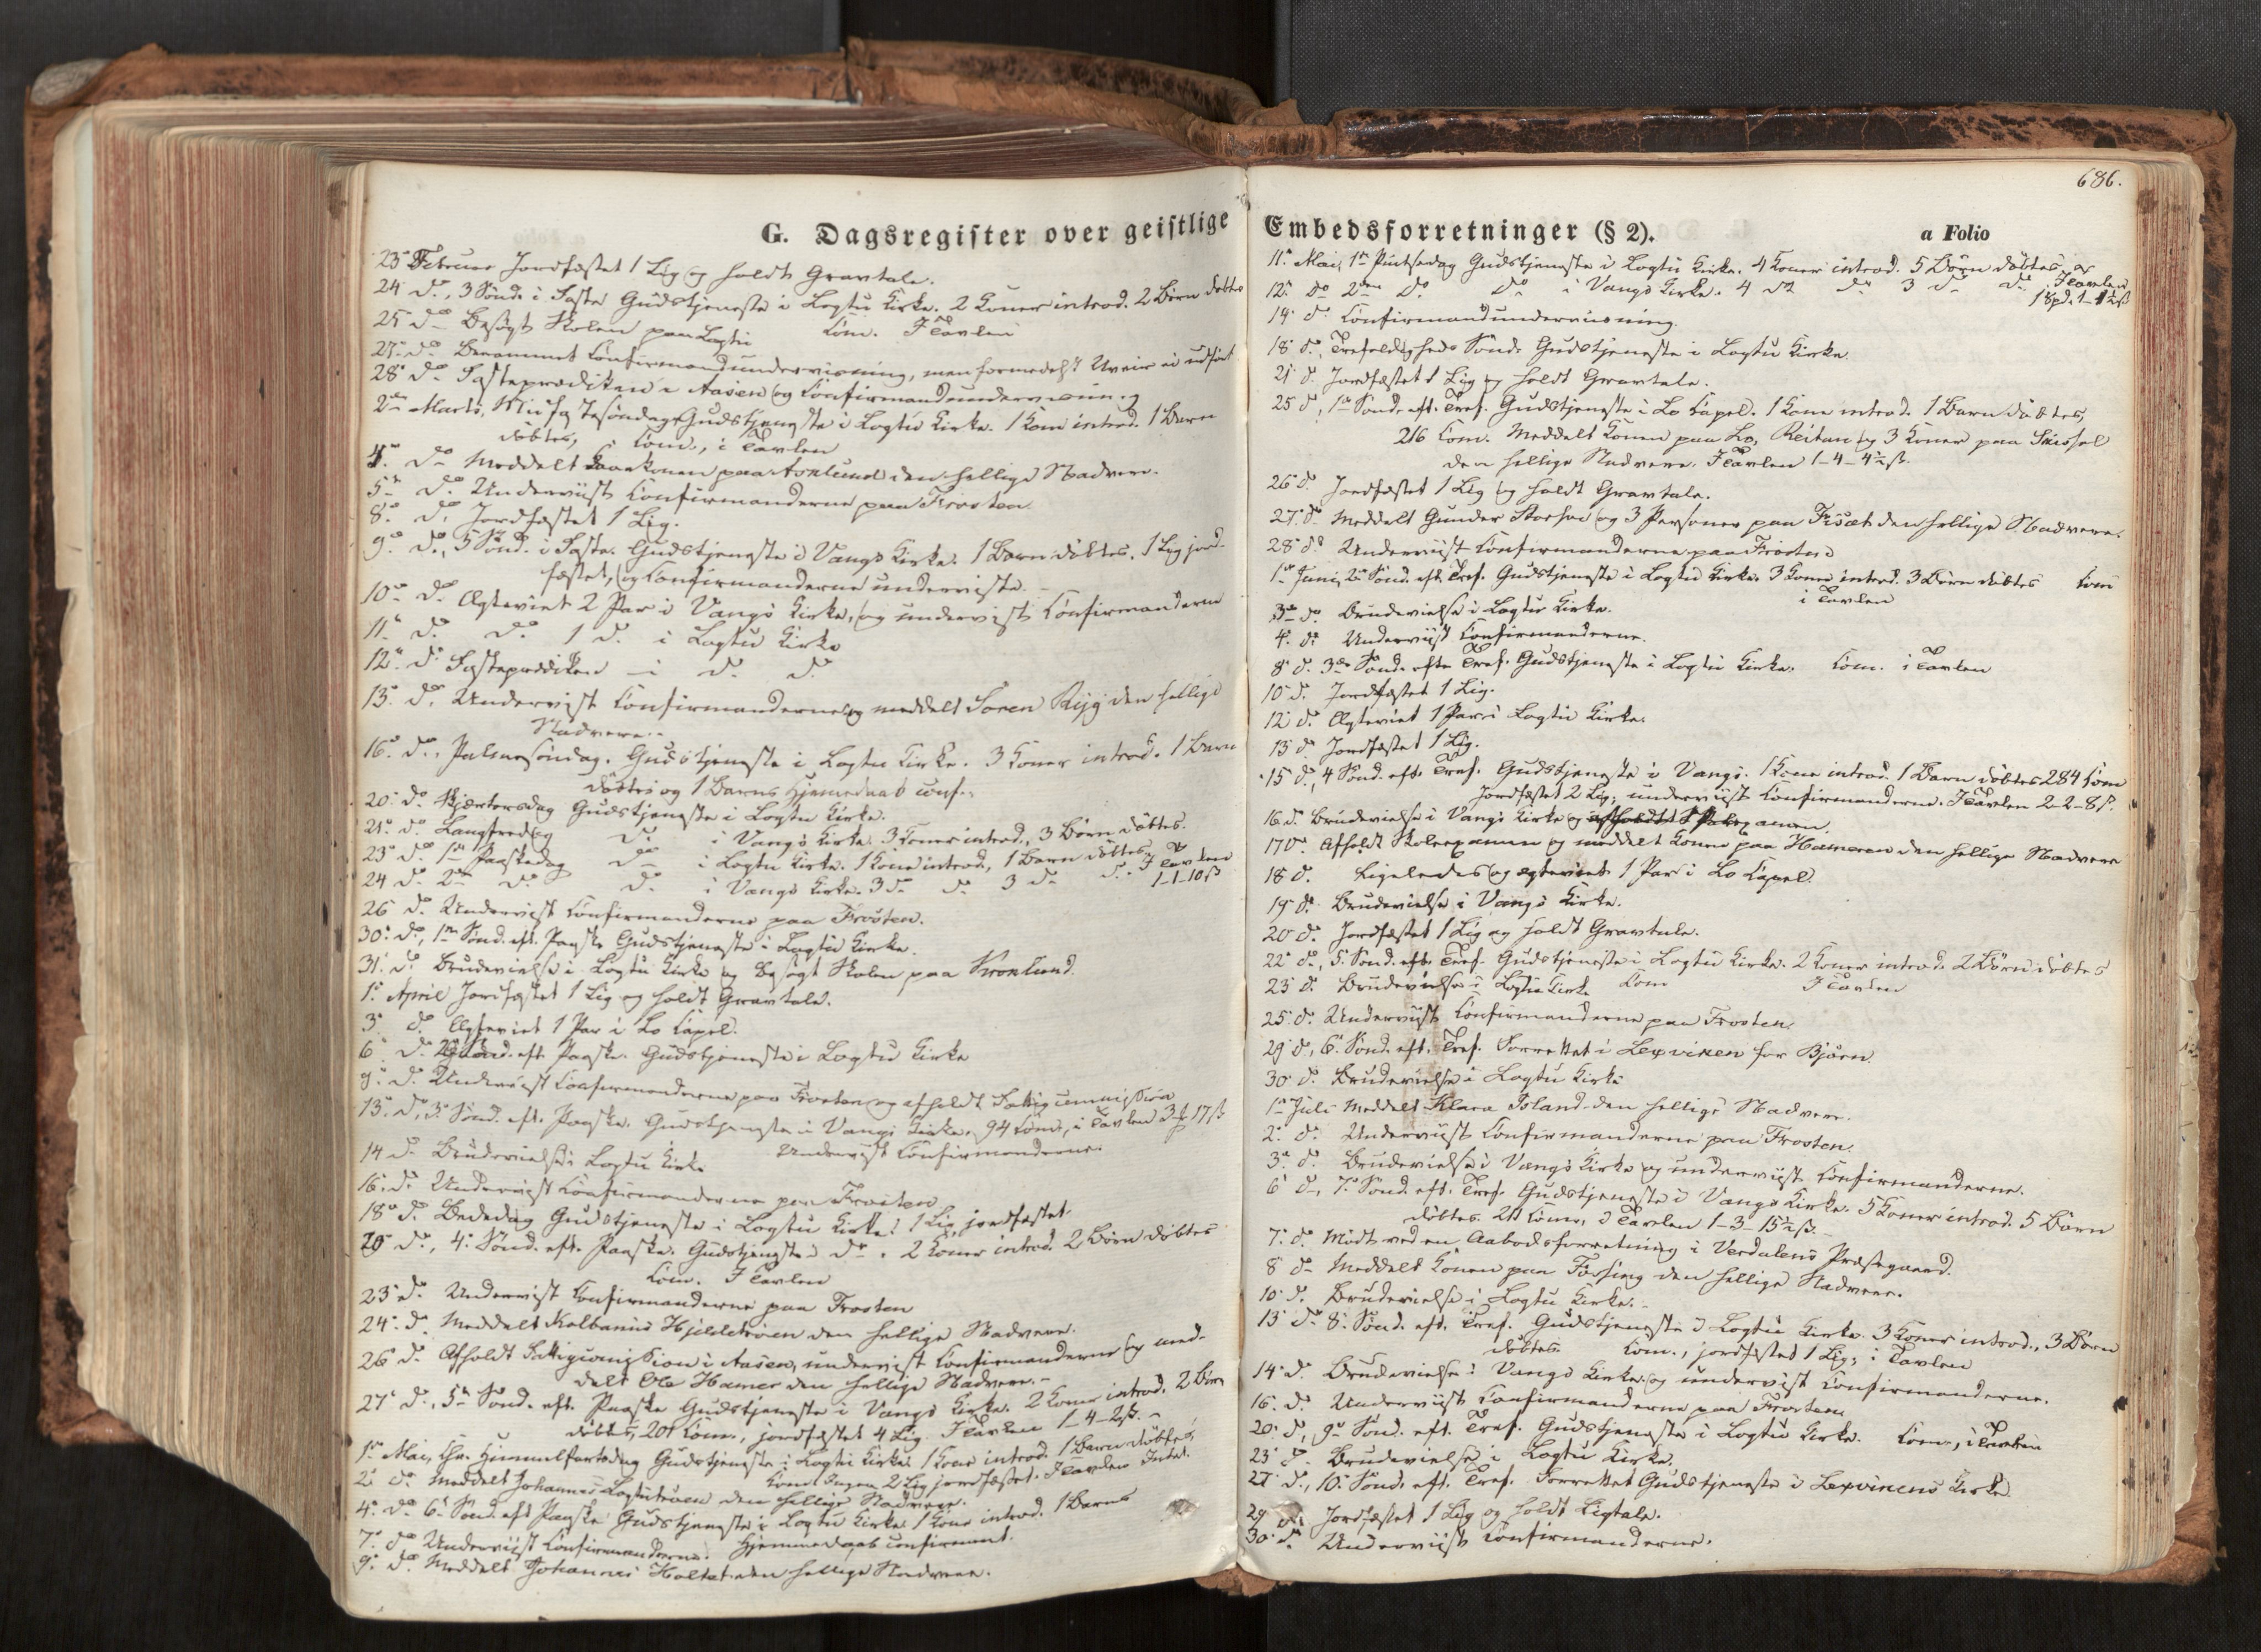 G. Dagsregister over geistlige
23de Februar Jordfæstet 1 Lig og holdt Gravtale.
24 do, 3 Sønd. i Faste Gudstjeneste i Logtu Kirke. 2 Koner introd. 2 Børn døbtes
25 do Besøgt Skolen paa Logtu Com. I Tavlen
27de do Berammet Confirmandundervisning, men formedelst Uveir ei udført
28de do Fasteprædiken i Aasen og Confirmandundervisning
2den Marts, Midfastesøndag Gudstjeneste i Logtu Kirke. 1 Kone introd. 1 Barn
døbtes, Com., i Tavlen
4. do Meddelt Kaarkonen paa Aoklund den hellige Nadvere.
5te do Underviist Confirmanderne paa Frosten.
8de do Jordfæstet 1 Lig.
9de do, 5 Sønd. i Faste. Gudstjeneste i Vangs Kirke. 1 Barn døbtes. 1 Lig jord-
fæstet, og Confirmanderne underviste.
10de do Ægteviet 2 Par i Vangs Kirke, og underviist Confirmanderne
11te do do 1 do i Logtu Kirke
12te do Fasteprædiken i do do
13de do Undervist Confirmanderne og meddelt Soren Ryg den hellige
Nadvere.
16de do, Palmesøndag. Gudstjeneste i Logtu Kirke. 3 Koner introd. 1 Barn
døbtes og 1 Barns Hjemmedaab conf.
20de do Skjærtorsdag Gudstjeneste i Logtu Kirke.
21de do Langfredag do i Vangs Kirke. 3 Koner introd., 3 Børn døbtes.
23de do 1ste Paaskedag do i Logtu Kirke. 1 Kone introd., 1 Barn døbtes, I Tavlen
24 do 2den do do i Vangs Kirke. 3 do do 3 do do 1-1-10 ß
26 do Undervist Confirmanderne paa Frosten.
30de do, 1ste Sønd. eft. Paaske Gudstjeneste i Logtu Kirke.
31. do Brudevielse i Logtu Kirke og besøgt Skolen paa Kvonlund.
1ste April Jordfæstet 1 Lig og holdt Gravtale.
3de do Ægteviet 1 Par i Lo Capel.
6 do 2 Sønd. eft. Paaske. Gudstjeneste i Logtu Kirke
9de do Underviist Confirmanderne paa Frosten og afholdt Fattigcommission
13de do, 3de Sønd. eft. Paaske. Gudstjeneste i Vangs Kirke. 94 Com., i Tavlen 3 17 ß
Undervist Confirmanderne.
14 do Brudevielse i Logtu Kirke
16. do Underviist Confirmanderne paa Frosten
18de do Bededag Gudstjeneste i Logtu Kirke. 1 Lig jordfæstet.
20 do, 4de Sønd. eft. Paaske. Gudstjeneste i do. 2 Koner introd. 2 Børn døbtes
Com. I Tavlen
23 do Undervist Confirmanderne paa Frosten
24. do Meddelt Kolbanus Hjeldetroen den hellige Nadvere.
26 do Afholdt Fattigcommission i Aasen, undervist Confirmanderne og med-
delt Ole Hamer den hellige Nadvere.
27de do, 5te Sønd. eft. Paaske Gudstjeneste i Vangs Kirke. 2 Koner introd. 2 Børn
døbtes, 201 Com., jordfæstet 4 Lig. I Tavlen 1-4-2 ß.
1ste Mai, Chr. Himmelfartsdag Gudstjeneste i Logtu Kirke. 1 Kone introd. 1 Barn døbtes,
Com. Ingen 2 Lig jordfæstet. I Tavlen Intet.
2de do Meddelt Johannes Logtutroen den hellige Nadvere.
4de do 6te Sønd. eft Paaske Gudstjeneste i Logtu Kirke. 1 Kone introd. 1 Barns
Hjemmedaab confirmeret.
7. do Underviist Confirmanderne.
9de do Meddelt Johannes Holtet den hellige Nadvere.
686.
Embedsforretninger (§ 2). a Folio
11te Mai, 1ste Pintsedag Gudstjeneste i Logtu Kirke. 4 Koner introd. 5 Børn døbtes,
12te do 2den do do i Vangs Kirke. 4 do do 3 do do. I Tavlen
1 Spd. 1-1½ ß
14 do Confirmandundervisning.
18 do, Trefoldigheds Sønd. Gudstjeneste i Logtu Kirke
21 do Jordfæstet 1 Lig og holdt Gravtale.
25 do, 1ste Sønd. eft. Tref. Gudstjeneste i Lo Capel. 1 Kone introd. 1 Barn døbtes,
216 Com. Meddelt Konen paa Lo, Reitan og 3 Koner paa
den hellige Nadvere. I Tavlen 1-4-4½ ß.
26 do Jordfæstet 1 Lig og holdt Gravtale.
27. do Meddelt Gunder Storhov og 3 Personer paa Fisæt den hellige Nadvere.
28 do Underviist Confirmanderne paa Frosten
1ste Juni, 2den Sønd. eft. Tref. Gudstjeneste i Logtu Kirke. 3 Koner introd. 3 Børn døbtes Com
i Tavlen
3de do Brudevielse i Logtu Kirke.
4. do Underviist Confirmanderne.
8de do 3de Sønd. efter Tref. Gudstjeneste i Logtu Kirke. Com. i Tavlen
10 do Jordfæstet 1 Lig.
12 do Ægteviet 1 Par i Logtu Kirke.
13 do Jordfæstet 1 Lig.
15 do, 4 Sønd. eft. Tref. Gudstjeneste i Vangs. 1 Kone introd. 1 Barn døbtes 284 Com
Jordfæstet 2 Lig, underviist Confirmanderne. I Tavlen 2-2-8 ß.
16 do Brudevielse i Vangs Kirke og afholdt Skoleexamen.
17 do Afholdt Skoleexamen og meddelt Konen paa Hameren den hellige Nadvere
18 do Ligeledes og ægteviet 1 Par i Lo Capel.
19 do Brudevielse i Vangs Kirke.
20 do Jordfæstet 1 Lig og holdt Gravtale.
22 do, 5. Sønd. eft. Tref. Gudstjeneste i Logtu Kirke. 2 Koner introd. 2 Børn døbtes
Com I Tavlen
23 do Brudevielse i Logtu Kirke
25. do Underviist Confirmanderne paa Frosten.
29 do, 6. Sønd. eft. Tref. Forrettet i Lexviken for Bjørn.
30 do Brudevielse i Logtu Kirke
1ste Juli Meddelt Klara Island den hellige Nadvere.
2. do Underviist Confirmanderne paa Frosten.
3de do Brudevielse i Vangs Kirke og underviist Confirmanderne.
6 do, 7. Sønd. eft. Tref. Gudstjeneste i Vangs Kirke. 5 Koner introd. 5 Børn
døbtes. 211 Com., I Tavlen 1-3-15½ ß.
7. do Mødt ved en Aabodsforretning i Verdalens Præstegaard.
8 do Meddelt Konen paa Forsing den hellige Nadvere.
10. do Brudevielse i Logtu Kirke.
13 do 8. Sønd. eft. Tref. Gudstjeneste i Logtu Kirke. 3 Koner introd., 3 Børn
døbtes Com., jordfæstet 1 Lig, i Tavlen
14 do Brudevielse i Vangs Kirke og undervist Confirmanderne.
16. do Underviist Confirmanderne paa Frosten
20. do, 9de Sønd. eft. Tref. Gudstjeneste i Logtu Kirke. Com., i Tavlen
23 do Brudevielse i Logtu Kirke.
27 do, 10. Sønd. eft. Tref. Forrettet Gudstjeneste i Lexvikens Kirke.
29 do Jordfæstet 1 Lig og holdt Ligtale.
30 do Underviist Confirmanderne.